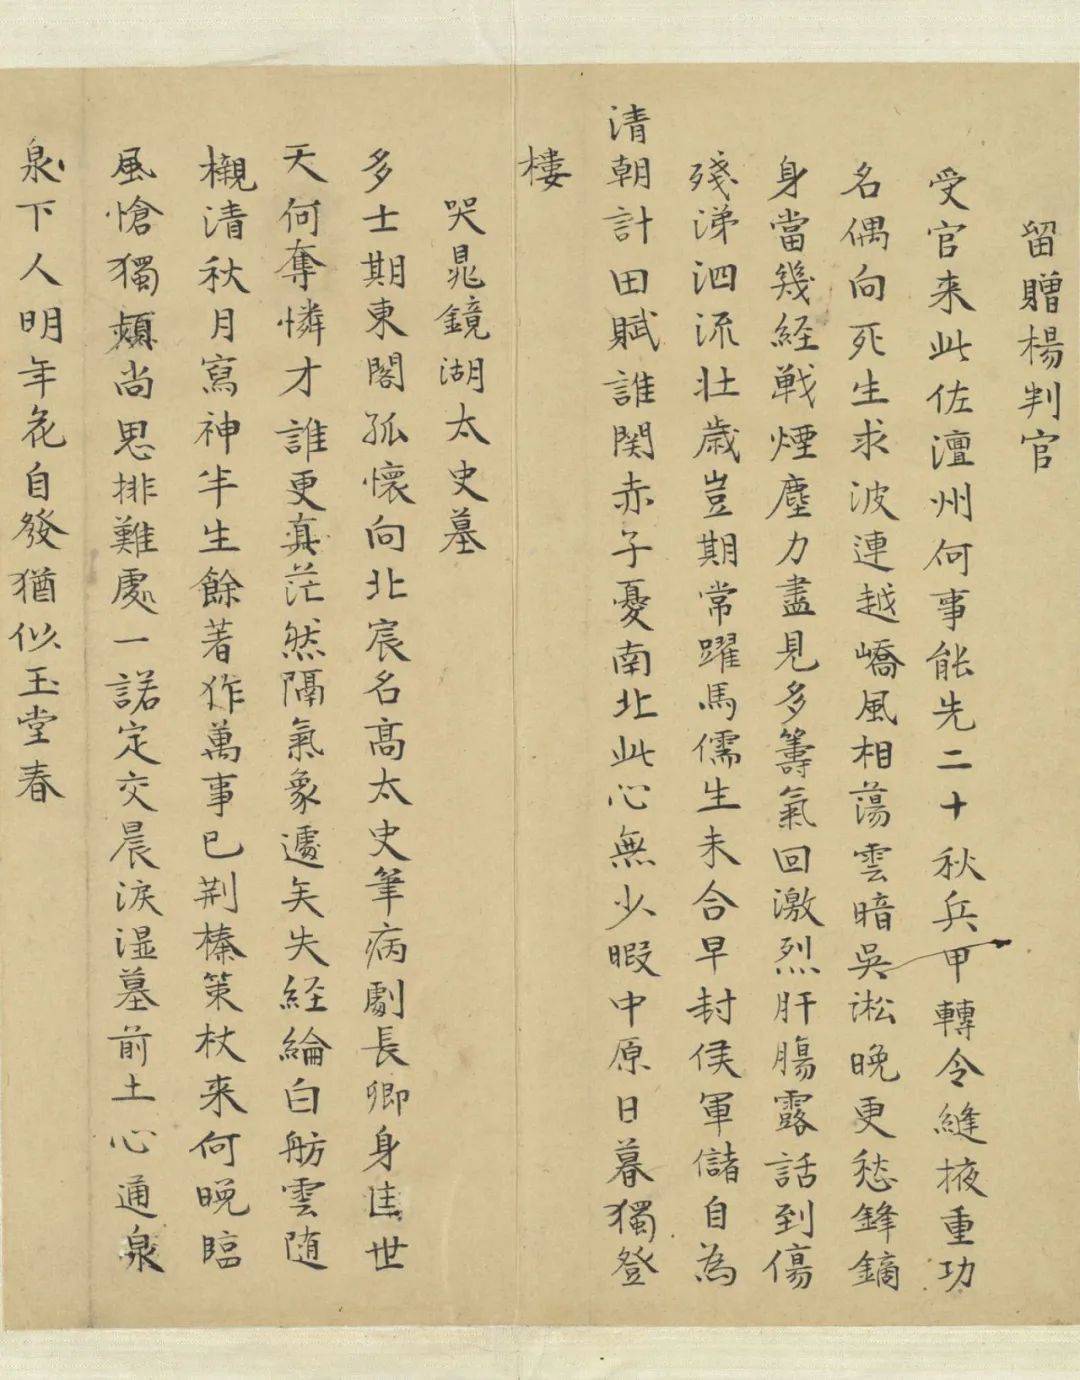 留贈楊判官
受官来此佐澶州何事能先二十秋兵甲轉令縫掖重功
名偶向死生求波連越嶠風相蕩雲暗吳淞晚更愁鋒鏑
身當幾経戦煙塵力盡見多籌氣回激烈肝腸露話到傷
殘涕泗流壮歳豈期常躍馬儒生未合早封侯軍儲自為
清朝計田賦誰関赤子憂南北此心無少暇中原日暮獨登
樓
哭晁鏡湖太史墓
多士期東閣孤懷向北宸名高太史筆病劇長卿身匡世
天何奪憐才誰更真茫然隔氣象遽矣失経綸白舫雲随
櫬清秋月寫神半生餘著作萬事已荆榛策杖来何晚臨
風愴獨頻尚思排難處一諾定交晨淚湿墓前土心通泉
泉下人明年花自發猶似玉堂春